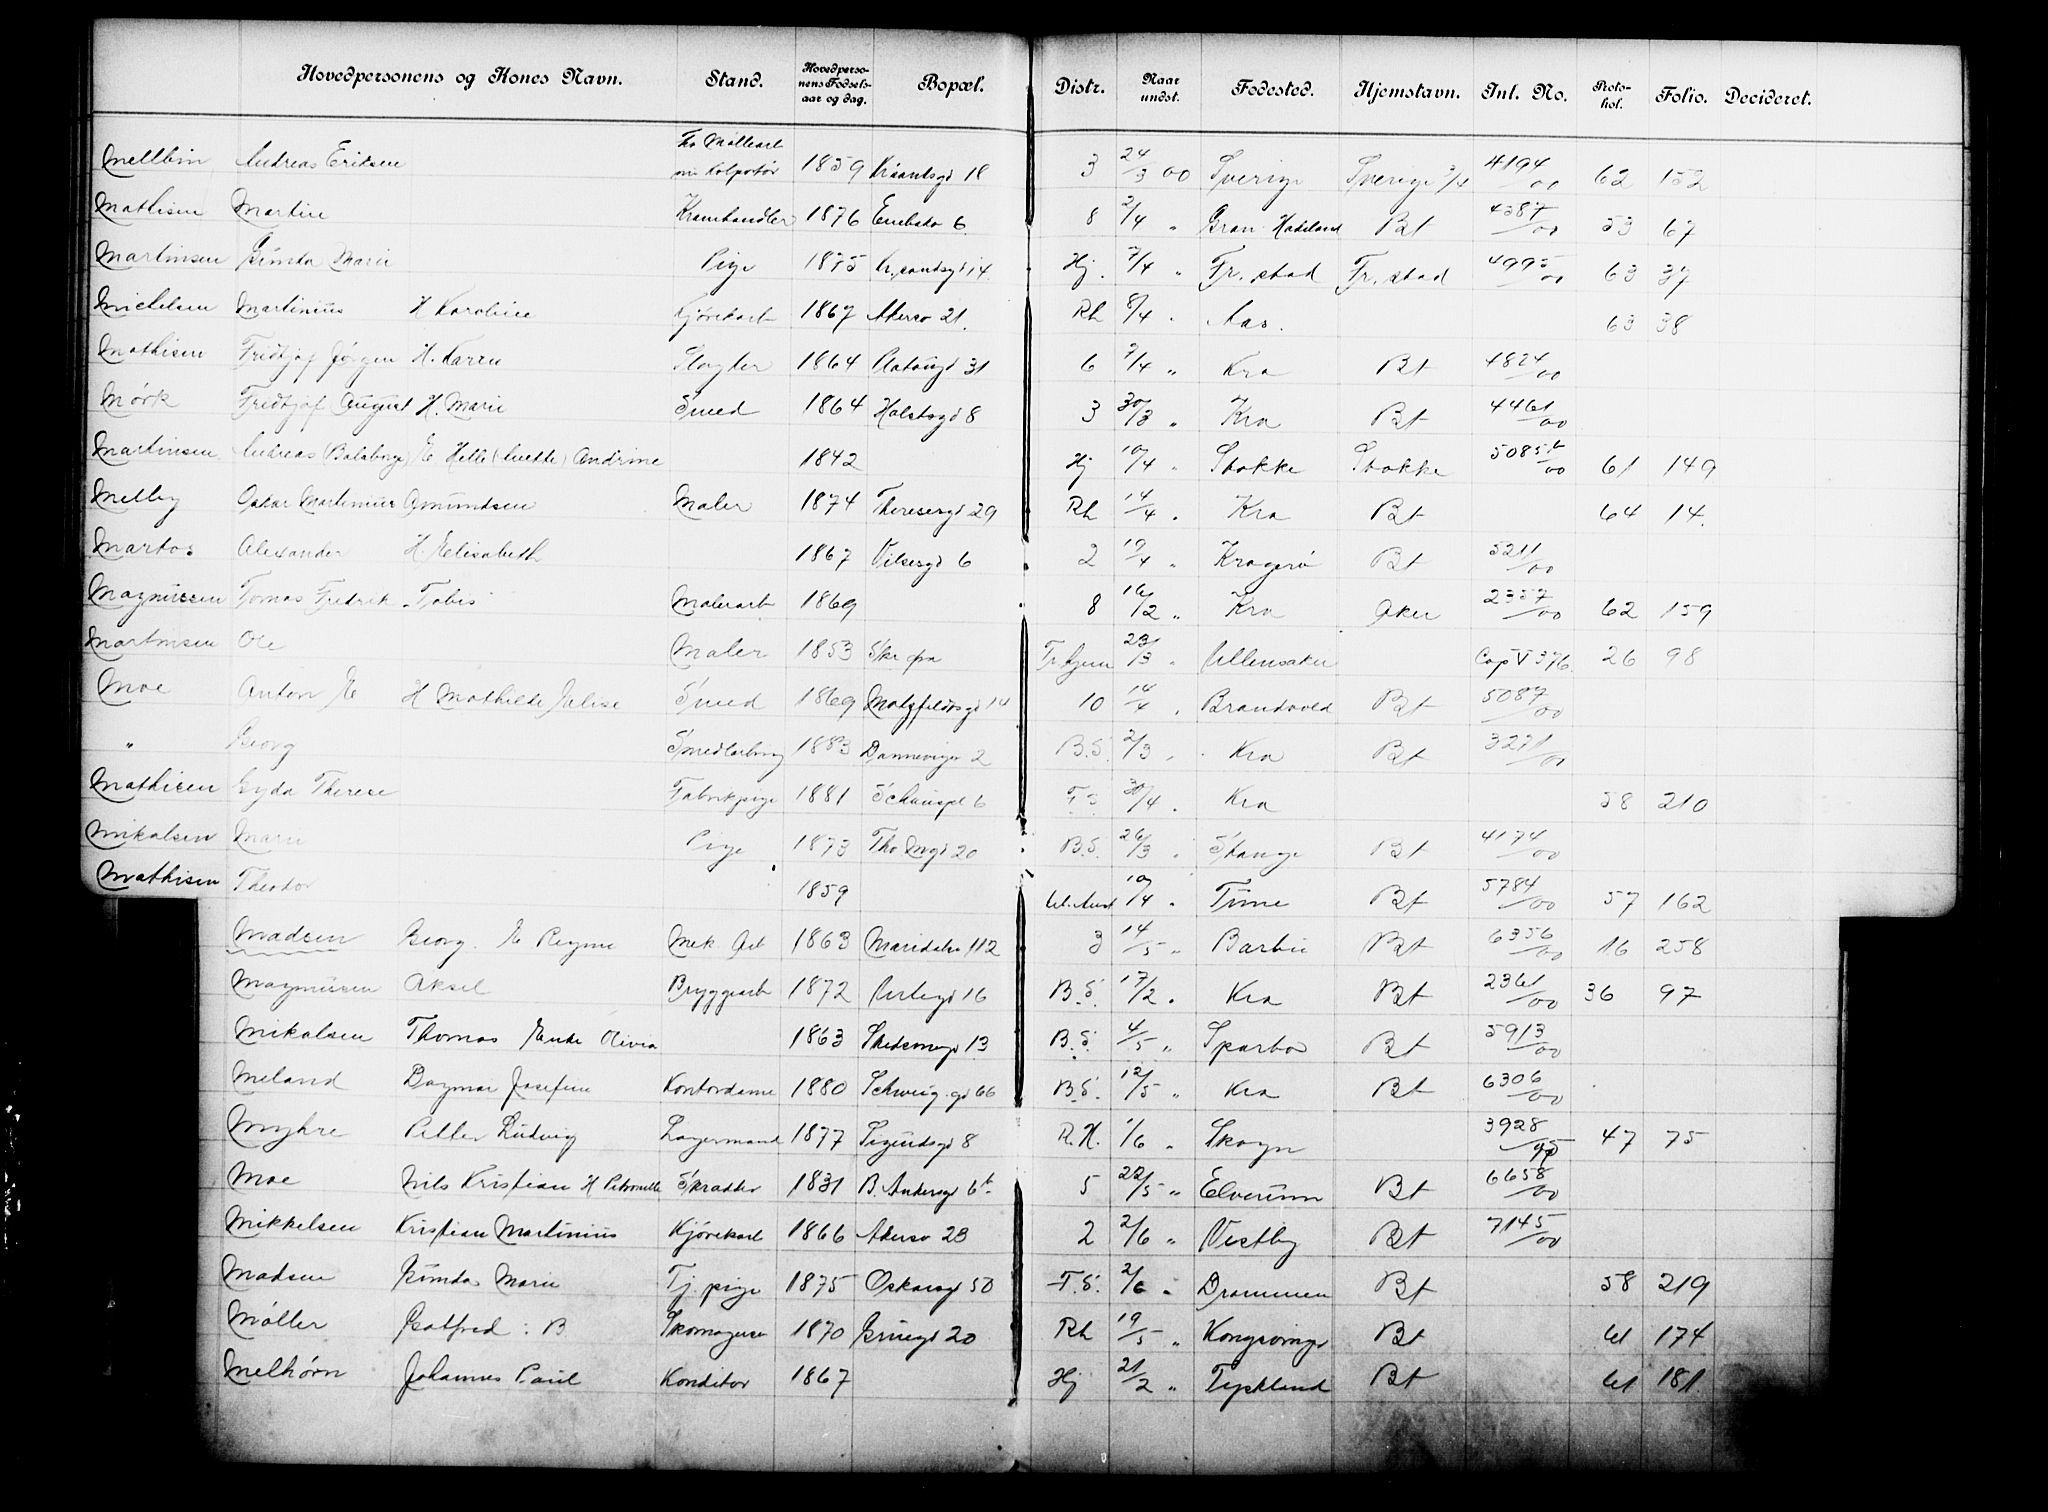 Hovedpersonens og Kones Navn. Stand. Hovedpersonens Fødselsaar og dag. Bopæl. Distr. Naar undst. Fødested. Hjemstavn. Inl. No. Protokol. Folio. Decideret.
Mellbin Andreas Eriksen 1859 18 3 24/3 00 Sverige Sverige 3/4 4194/00 62 152
Mathisen Martin Kramhandler 1876 6 8 2/4 " Gran Hadeland Bt 4387/00 53 67
Martinsen Gunda Marie Pige 1875 Kr.sandsgd 14 Hj. 7/4 " Fr.stad Fr.stad 4995/00 63 37
Michelsen Martinius H Karoline Kjørekarl 1867 Akersv 21. Rh 8/4 " Aas. 63 38
Mathisen Fridtjof Jørgen H. Karen Slagter 1864 31 6 7/4 " Kra Bt 4824/00
Mørk Fridtjof August H. Marie Smed 1864 Holstsgd 8 3 30/3 " Kra Bt 4461/00
Martinsen Andreas E Helle Andrine 1842 Hj 10/4 " Stokke Stokke 5085b/00 61 149
Melby Oskar Martinius Amundsen Maler 1874 Theresesgd 29 Rh 14/4 " Kra Bt 64 14.
Martos Alexander H. Elisabeth 1867 Vibesgd 6 2 19/4 " Kragerø Bt 5211/00
Magnussen Tomas Fredrik Tobis Malerarb 1869 8 16/2 " Kra Aker 2357/00 62 159
Martinsen Ole Maler 1853 Tr.hjem 23/3 " Ullensaker Cop V 376. 26 98
Moe Anton E H Mathilde Elise Smed 1869 Motzfeldtsgd 14 10 14/4 " Brandvold Bt 5087/00
" Georg 1883 Dannevigsv 2 B.S. 2/3 " Kra Bt 3271/00
Mathisen Gyda Therese Fabrikpige 1881 Schouspl 6 30/4 " Kra 58 210
Mikalsen Marie Pige 1873 Tho Mgd 20 B.S. 26/3 " Stange Bt 4174/00
Mathisen Theodor 1859 10/4 " Time Bt 5784/00 57 162
Madsen Georg. E Regine Mek Arb 1863 Maridalsv 112 3 14/5 " Barbu Bt 6356/00 16 258
Magnussen Aksel Bryggearb 1872 Urtegd 16 B.S. 17/2 " Kra Bt 2361/00 36 97
Mikalsen Thomas Enke Olivia 1863 Skedsmogd 13 B.S. 4/5 " Sparbo Bt 5913/00
Meland Dagmar Josefine Kontordame 1880 Schweig.gd 66 B.S. 12/5 " Kra Bt 6306/00
Myhre Petter Ludvig Lagermand 1877 Sigurdsgd 8 R.H. 1/6 " Skogn 3928/95 47 75
Moe Nils Kristian H Petronelle Skrædder 1831 B. Ankersgd 6b 5 22/5 " Elverum Bt 6658/00
Mikkelsen Kristian Martinius Kjørekarl 1866 Akersv 23 2 2/6 " Vestby Bt 7145/00
Madsen Gunda Marie Tj. pige 1875 Oskarsgd 50 T.S. 2/6 " Drammen Bt 58 219
Møller Gotfred : B Skomagersv 1870 Gruegd 20 Rh 19/5 " Kongsvinger Bt 61 174
Melhørn Johannes Paul Konditor 1867 Hj 21/2 " Tyskland Bt 61 181.